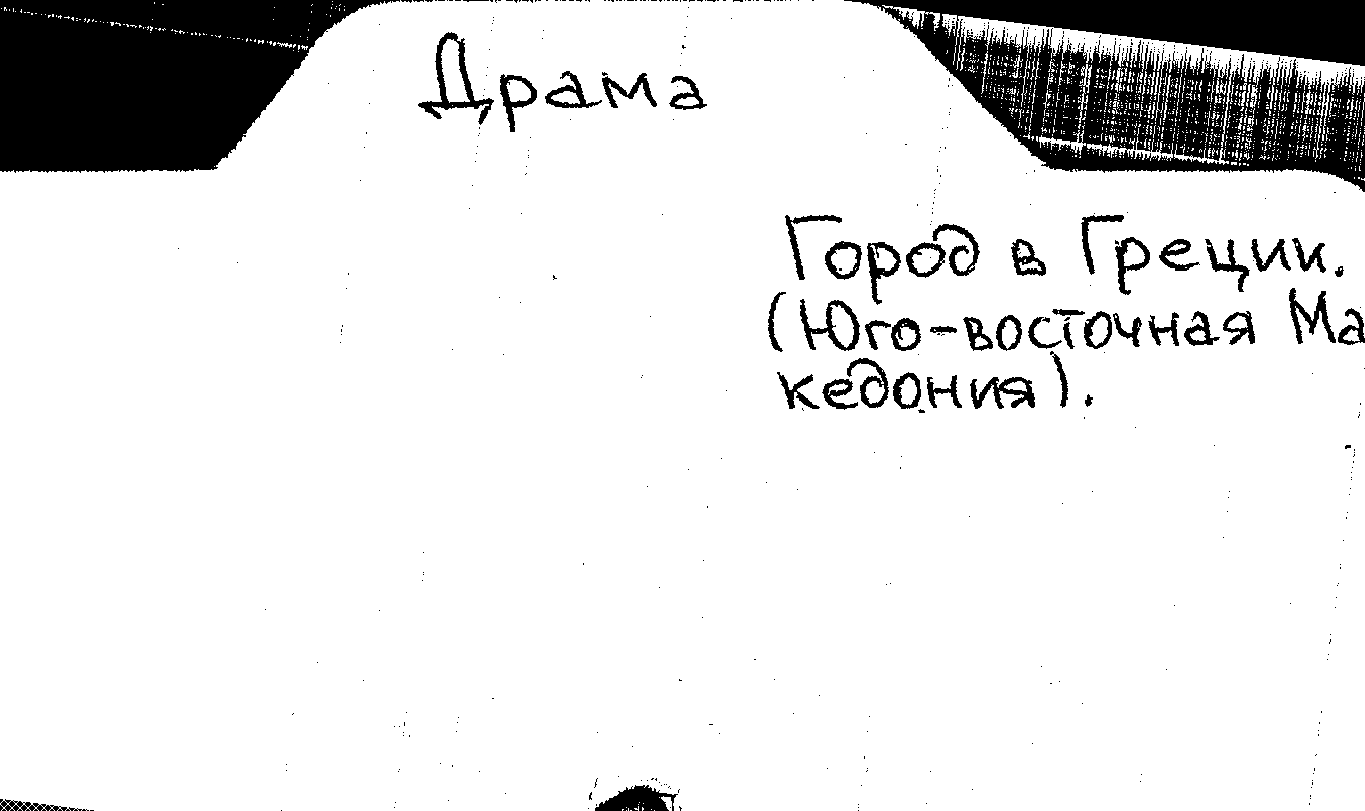 Драма
Город в Греции.
(Юго-восточная Ма
кедония).